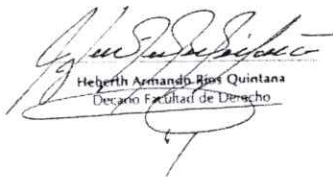 Heberth Armando Rios Quintana
Decano Facultad de Derecho